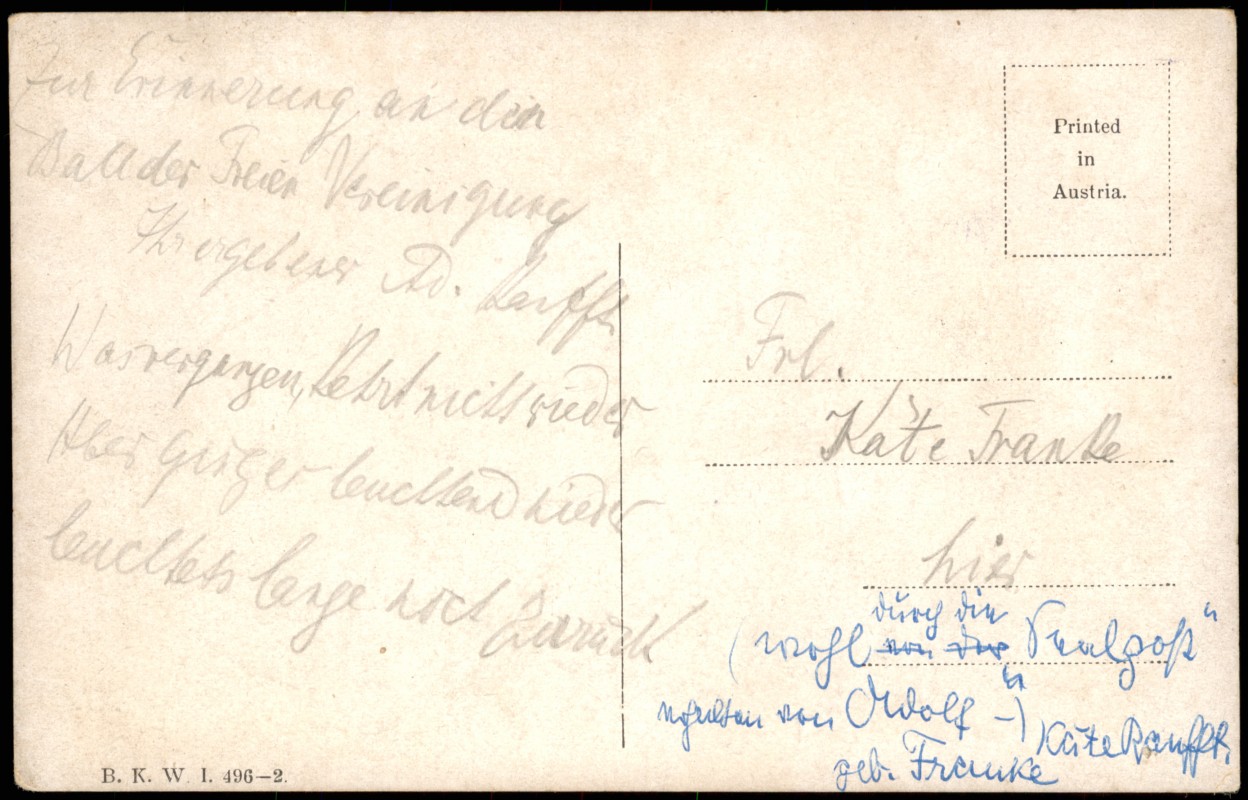 Zur Erinnerung an den
Ball der Freien Vereinigung
Ihr ergebener Ad. Ranfft
Was vergangen, kehrt nicht wieder
Aber ging er leuchtend nieder
leuchtets lange noch zurück
Printed
in
Austria.
Frl.
Käte Franke
hier
durch die
(wohl von der Saalpost"
erhalten von Adolf -)
Käte Ranfft,
geb. Franke
B. K. W. I. 496-2.